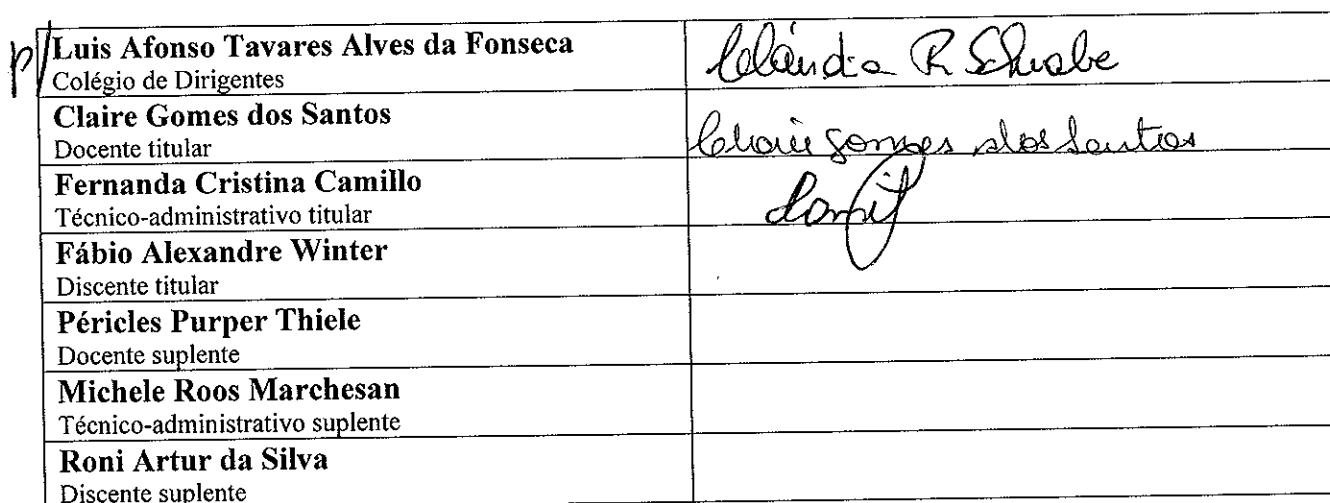 p/ Luis Afonso Tavares Alves da Fonseca
Colégio de Dirigentes
Cláudia R Schwabe
Claire Gomes dos Santos
Docente titular
Claire Gomes dos Santos
Fernanda Cristina Camillo
Técnico-administrativo titular
Fábio Alexandre Winter
Discente titular
Péricles Purper Thiele
Docente suplente
Michele Roos Marchesan
Técnico-administrativo suplente
Roni Artur da Silva
Discente suplente